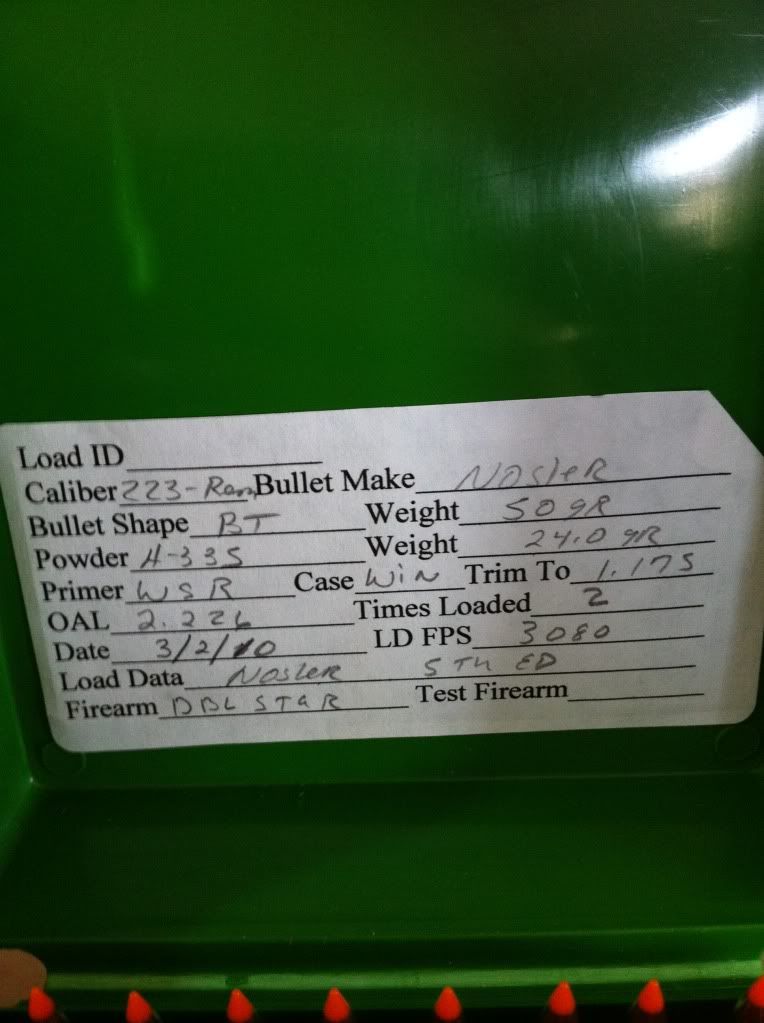 Load ID
Caliber 223-Rem Bullet Make Nosler
Bullet Shape BT Weight 50 gR
Powder H-335 Weight 24.0 gR
Primer WSR Case Win Trim To 1.175
OAL 2.226 Times Loaded 2
Date 3/2/10 LD FPS 3080
Load Data Nosler 5TH ED
Firearm DBL STAR Test Firearm